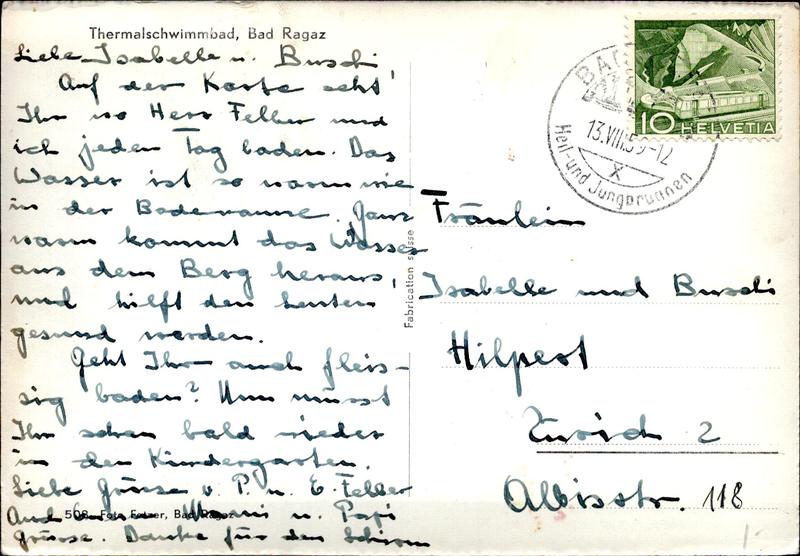 Thermalschwimmbad, Bad Ragaz
Liebe Isabelle u. Buschi
Auf der Karte seht
Ihr wo Herr Feller und
ich jeden Tag baden. Das
Wasser ist so warm wie
in der Badewanne. Ganz
warm kommt das Wasser
aus dem Berg heraus
und hilft den Leuten
gesund werden.
Geht Ihr auch fleis-
sig baden? Nun müsst
Ihr schon bald wieder
in den Kindergarten.
Liebe Grüsse v. P. u. E. Feller
Auch Mami u. Papi
Grüsse. Danke für den
508 Foto Fetzer, Bad Ragaz
Fabrication suisse
BAD
13.VIII.5 -12
X
Heil- und Jungbrunnen
10 HELVETIA
Fräulein
Isabelle und Buschi
Hilpert
Zürich 2
Albisstr. 118